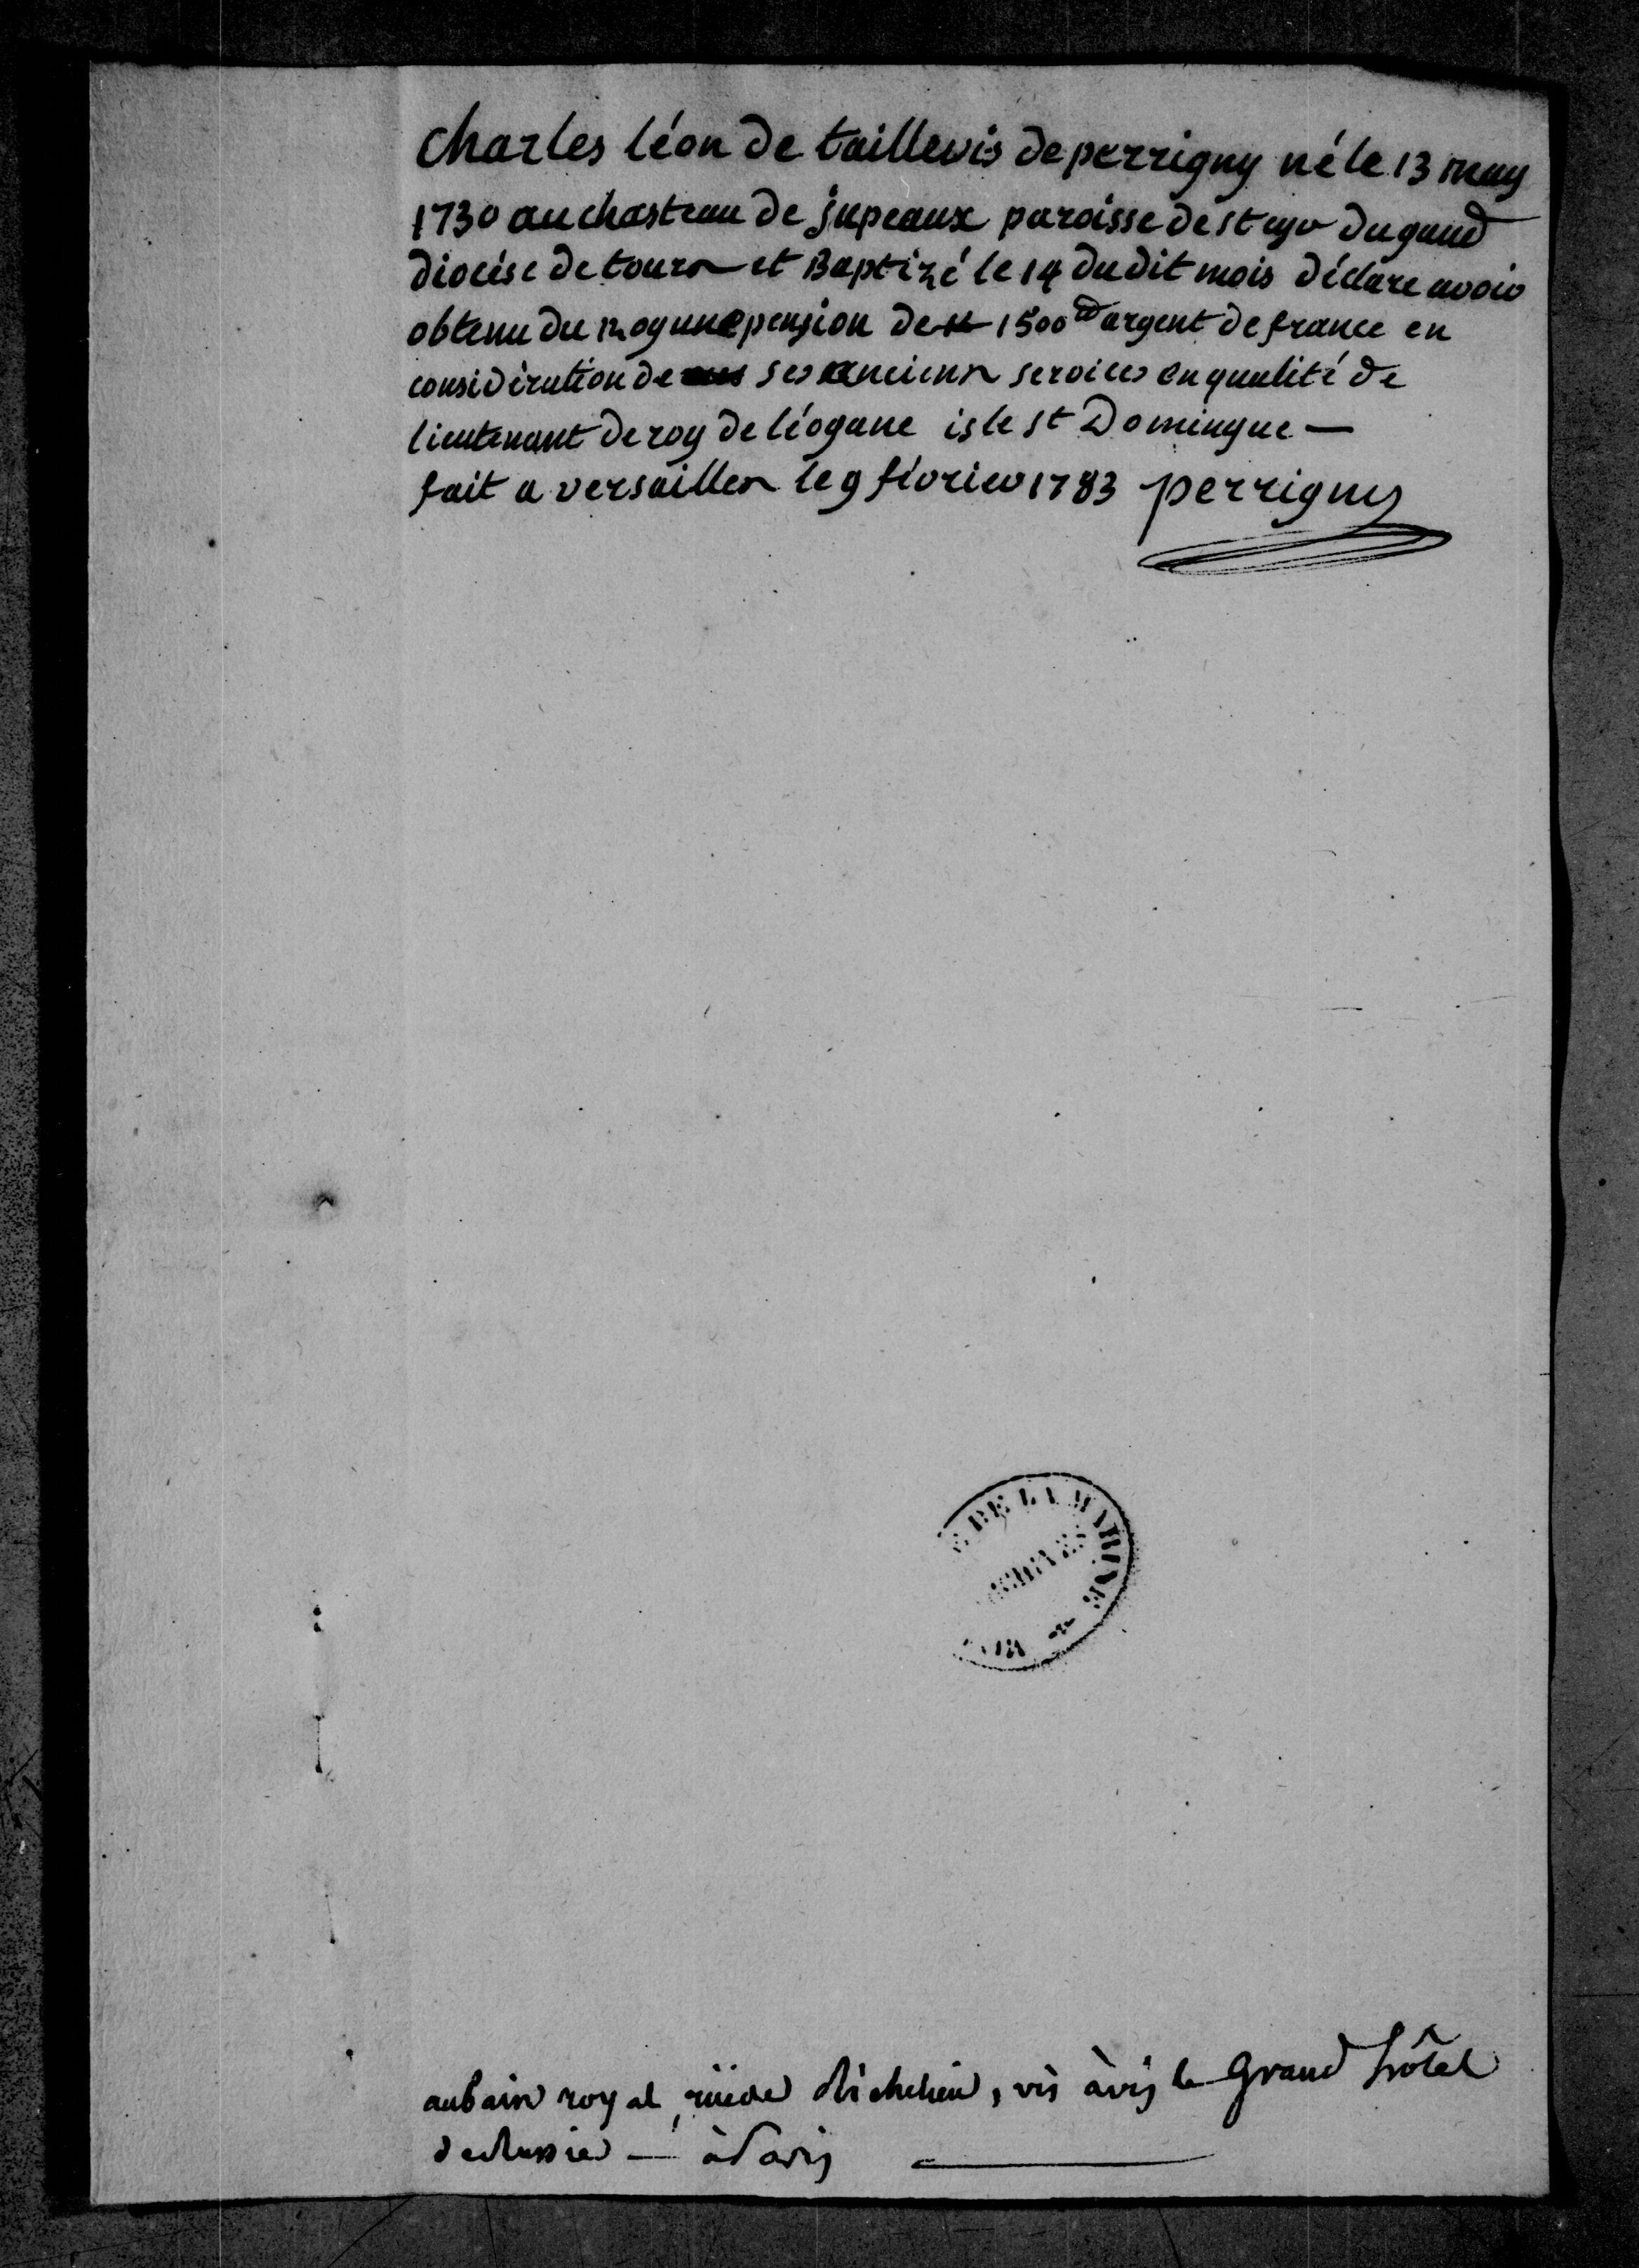 Charles léon de taillevis de perrigny né le 13 may
1730 au chasteau de jupeaux paroisse de st cyr du gaud
diocése de tours et Baptizé le 14 du dit mois déclare avoir
obtenu du Roy une pension de 1500 argent de france en
considération de ses anciens services en qualité de
lieutenant de roy de léogane isle st Domingue —
fait a versailles le 9 février 1783 perrigny
DE LA MARINE
au bain royal, rüe de Richelieu, vis àvis le Grand hôtel
de Russie — à Paris